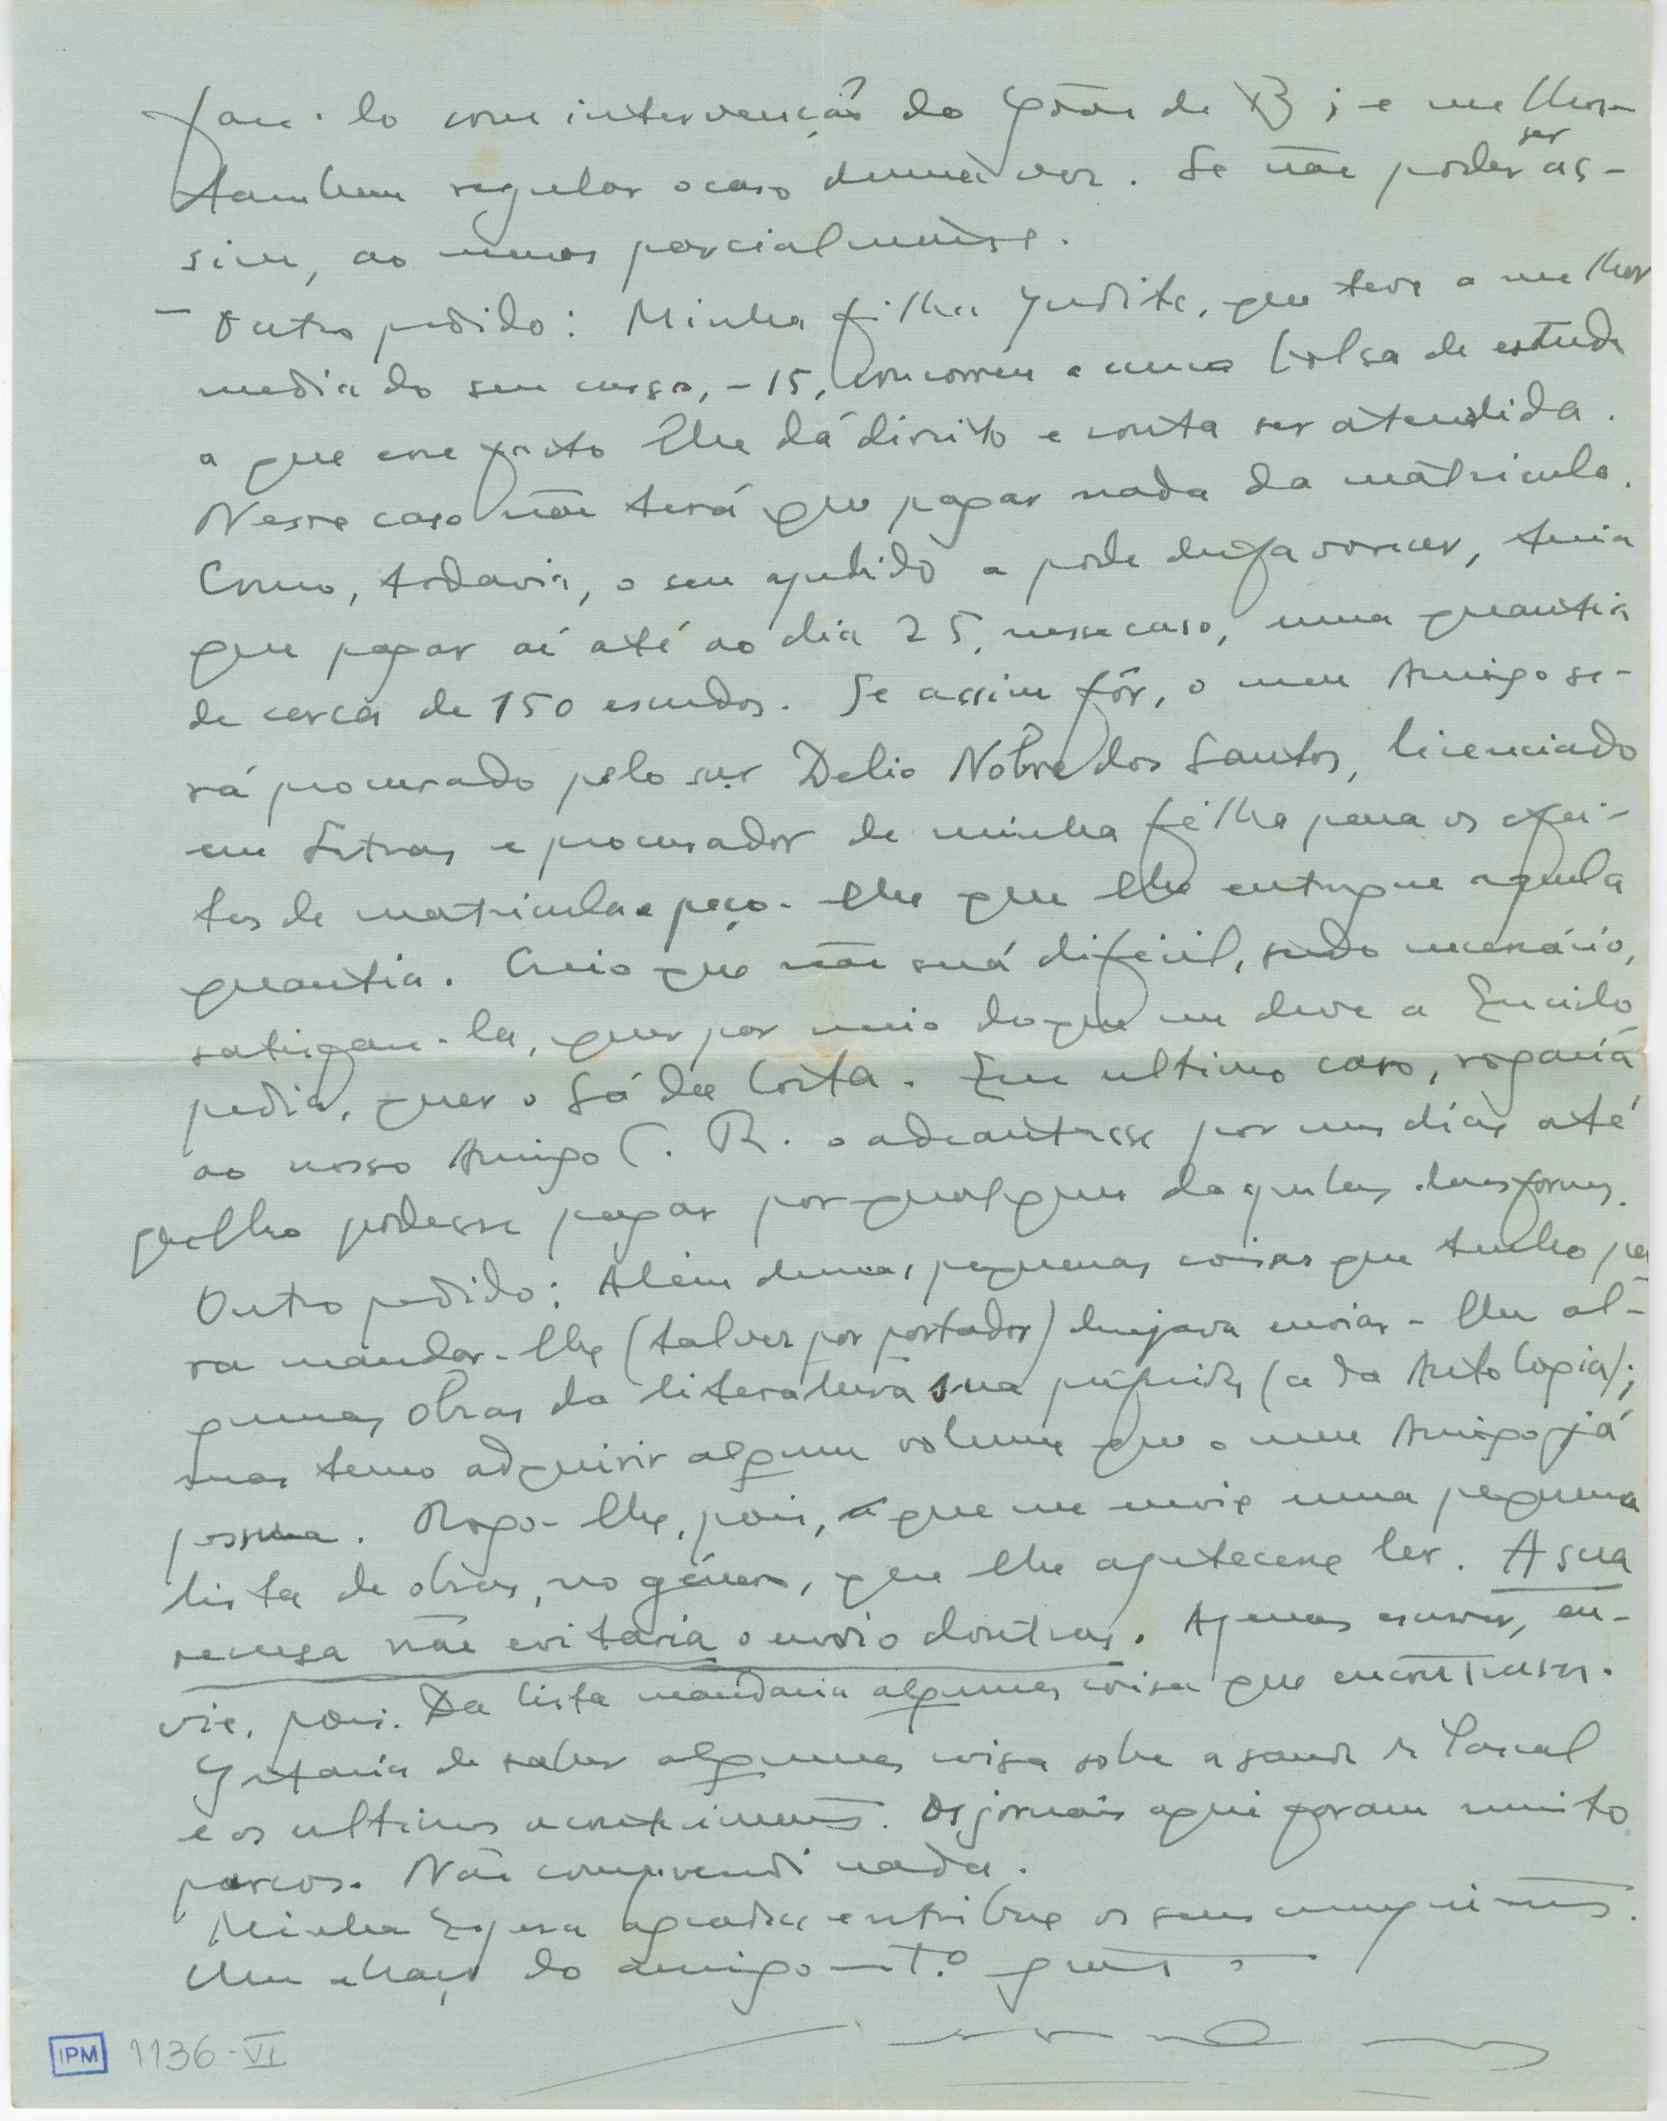 fazê-lo com intervenção do de B; e melhor
tambem regular o caso duma vez. Se não poder ser as-
sim, ao menos parcialmente.
– Outro pedido: Minha filha Judite, que teve a melhor
media do seu curso, – 15, concorreu a uma bolsa de estudo
a que esse facto lhe dá direito e conta ser atendida.
Nesse caso não terá que pagar nada da matricula.
Como, todavia, o seu apelido a pode desfavorecer, teria
que pagar aí até ao dia 25, nesse caso, uma quantia
de cerca de 150 escudos. Se assim fôr, o meu Amigo se-
rá procurado pelo snr Delio Nobre dos Santos, licenciado
em Letras e procurador de minha filha para os efei-
tos de matricula e peço-lhe que lhe entregue aquela
quantia. Creio que não será dificil, sendo necessário,
satisfaze-la, quer por meio do que me deve a Enciclo
pedia, quer o Sá da Costa. Em ultimo caso, rogaria
ao nosso Amigo C. R. o adeantasse por uns dias até
que lho podesse pagar por qualquer daquelas duas formas.
Outro pedido: Além dumas pequenas coisas que tenho pa
ra mandar-lhe (talvez por portador) desejava enviar-lhe al-
gumas obras da literatura sua preferida (a da Antologia);
mas temo adquirir algum volume que o meu Amigo já
possua. Rogo-lhe, pois, que me envie uma pequena
lista de obras, no género, que lhe apetecesse ler. A sua
recusa não evitaria o envio doutras. Apenas escrever, en-
vie, pois. Da lista mandaria algumas coisas que encontrasse.
Gostaria de saber alguma coisa sobre a saude de Pascal
e os ultimos acontecimentos. Os jornais aqui foram muito
parcos. Não compreendi nada.
Minha Esposa agradece e retribue os seus cumprimentos.
Um abraço do amigo mt.º grato
IPM 1136-VI